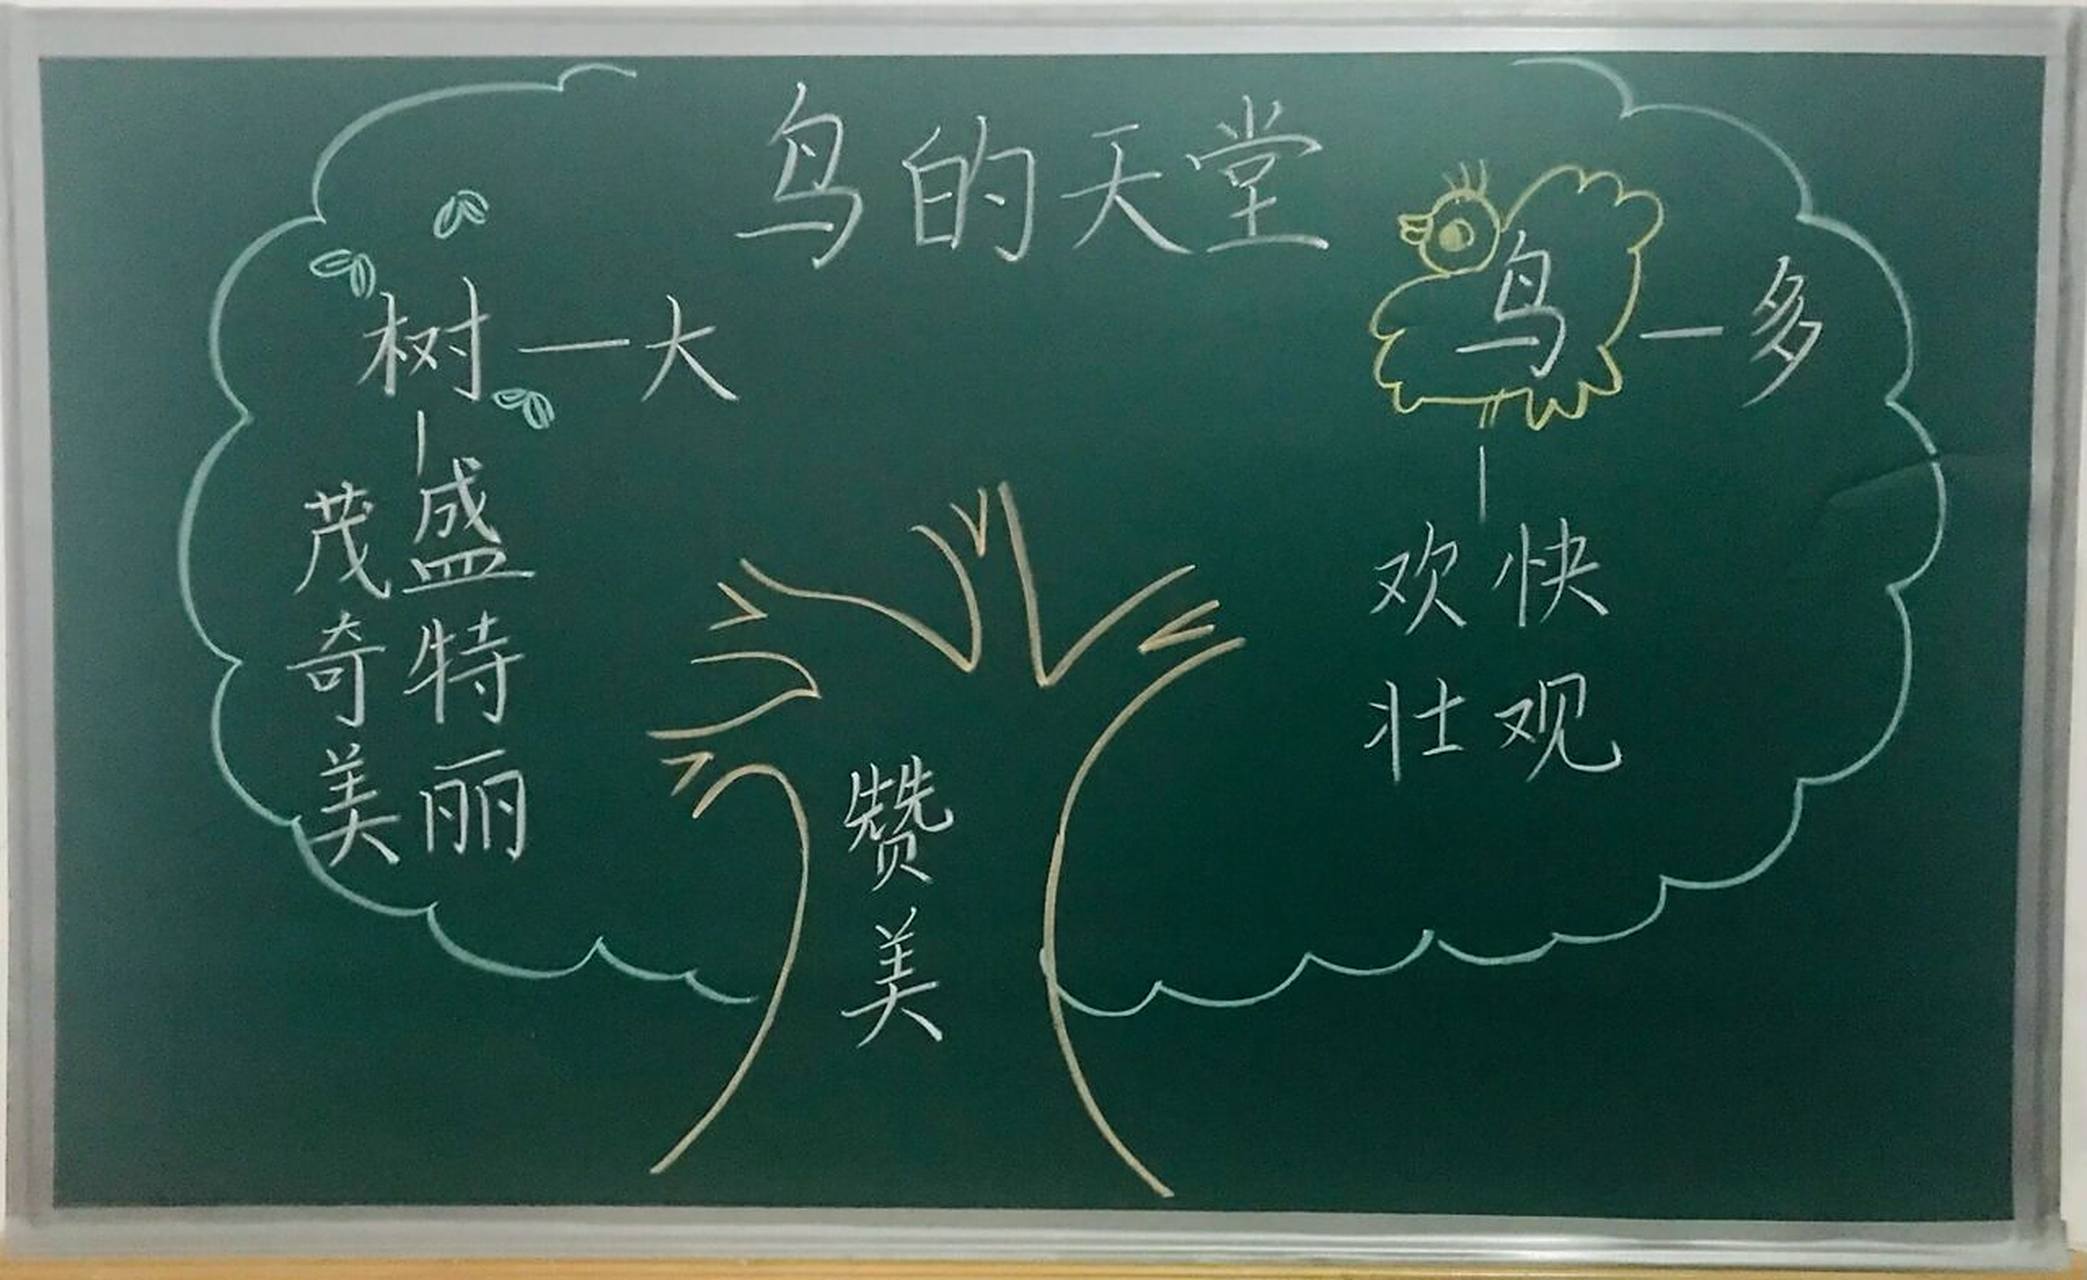 鸟的天堂
树—大
茂盛
奇特
美丽
鸟—多
欢快
壮观
赞美